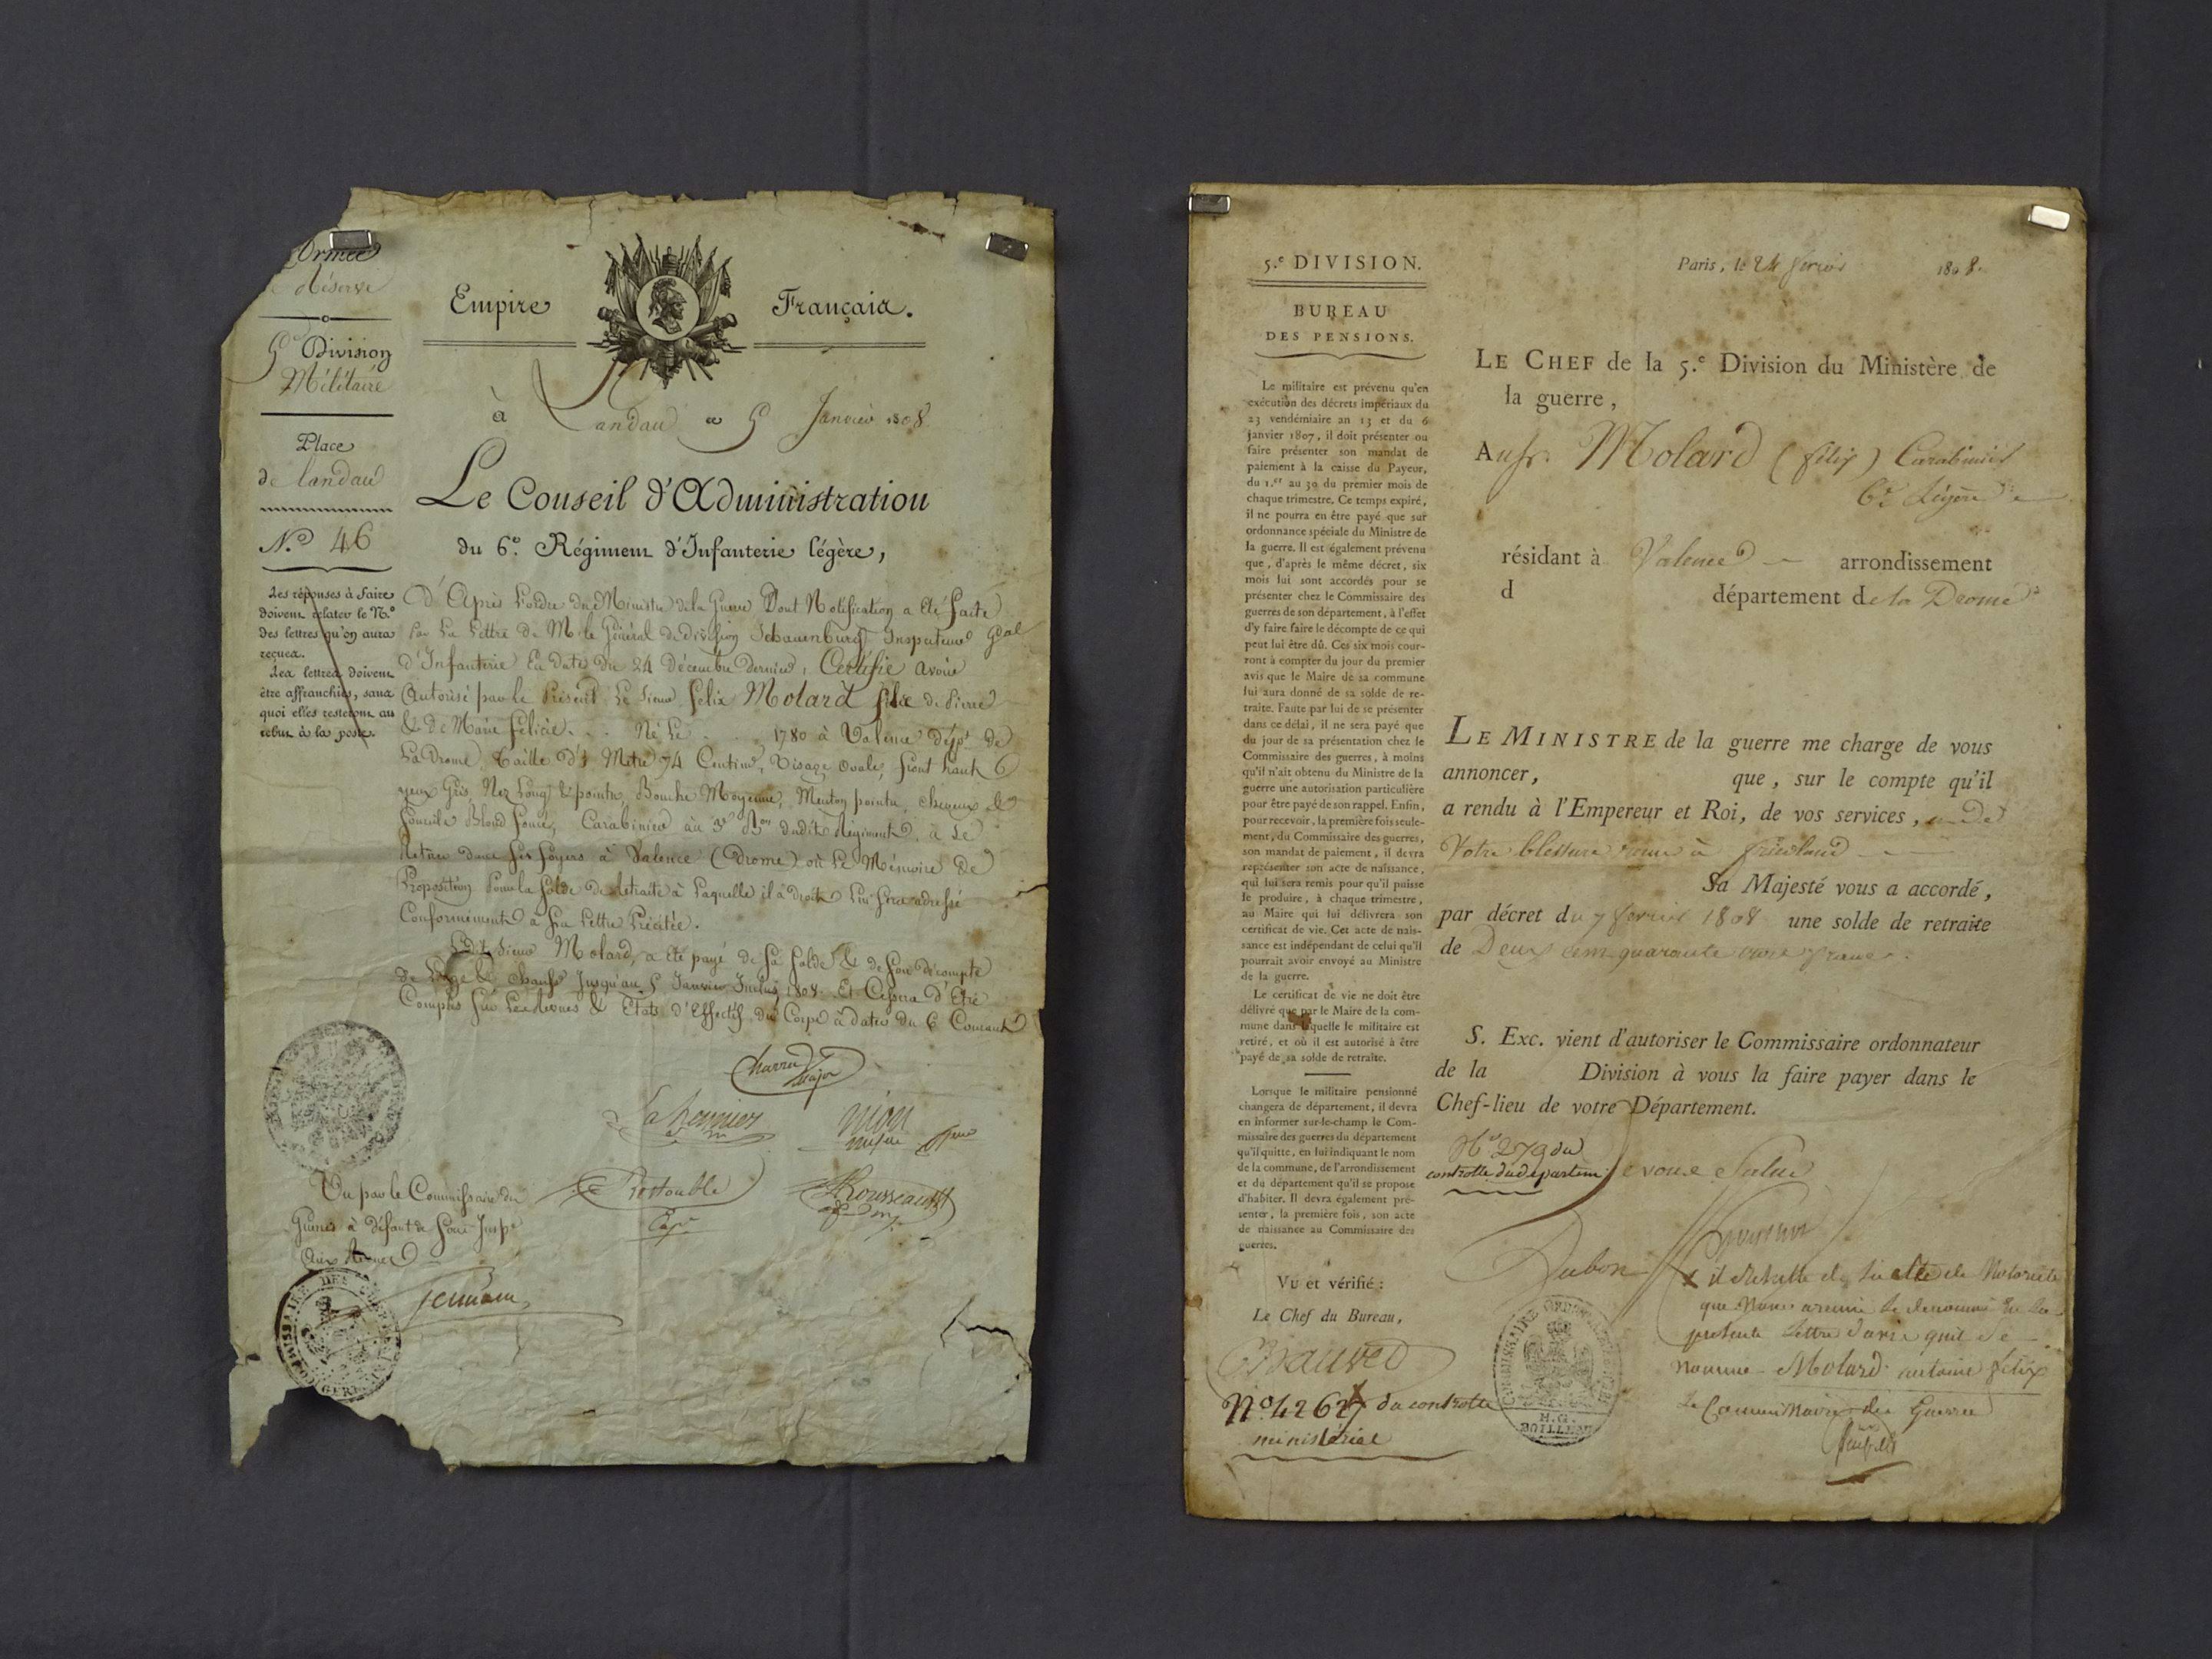 Armée
de Réserve
5e Division
Militaire
Place
de landau
N.o 46
Les réponses à faire
doivent relater le N.o
des lettres qu'on aura
reçues.
Les lettres doivent
être affranchies, sans
quoi elles resteront au
rebut à la poste.
Empire Français.
à Landau ce 5 Janvier 1808
Le Conseil d'Administration
du 6e. Régiment d'Infanterie légère,
D'Après L'ordre du Ministre de la Guerre Dont Notification a Eté faite
Par La Lettre de M. le Général de Division Schauenburg Inspecteur Gal
d'Infanterie En date du 24 Décembre dernier, Certifie avoir
Autorisé par le Présent Le Sieur Felix Molard fils de Pierre
& de Marie félicié Né Le 1780 à Valence dépt. de
La Drome, Taille d'1 Metre 74 Centim, Visage ovale, front haut
yeux Gris, Nez Long & pointu, Bouche Moyenne, Menton pointu, cheveux &
Sourcils Blond foncé, Carabinier au 3e Bon dudit Régiment à Se
Retirer dans ses foyers à Valence (Drome) où Le Mémoire de
Proposition Pour la solde de Retraite à Laquelle il à droit Lui sera adressé
Conformément à Sa Lettre Précitée.
Ledit Sieur Molard, a Eté payé de Sa Solde & de Son décompte
de Linge & chauss. Jusqu'au 5 Janvier Inclus 1808. Et Cessera d'Etre
Compris Sur Les Revues & Etats d'Effectif du Corps à dater du 6 Courant
Major
Rousseau
Vu par le Commissaire des
Guerres à défaut de Sous Inspr
Aux Revues
COMMISSAIRE DES GUERRES
5.e DIVISION.
BUREAU
DES PENSIONS.
Le militaire est prévenu qu'en
exécution des décrets impériaux du
23 vendémiaire an 13 et du 6
janvier 1807, il doit présenter ou
faire présenter son mandat de
paiement à la caisse du Payeur,
du 1.er au 30 du premier mois de
chaque trimestre. Ce temps expiré,
il ne pourra en être payé que sur
ordonnance spéciale du Ministre de
la guerre. Il est également prévenu
que, d'après le même décret, six
mois lui sont accordés pour se
présenter chez le Commissaire des
guerres de son département, à l'effet
d'y faire faire le décompte de ce qui
peut lui être dû. Ces six mois cour-
ront à compter du jour du premier
avis que le Maire de sa commune
lui aura donné de sa solde de re-
traite. Faute par lui de se présenter
dans ce délai, il ne sera payé que
du jour de sa présentation chez le
Commissaire des guerres, à moins
qu'il n'ait obtenu du Ministre de la
guerre une autorisation particulière
pour être payé de son rappel. Enfin,
pour recevoir, la première fois seule-
ment, du Commissaire des guerres,
son mandat de paiement, il devra
représenter son acte de naissance,
qui lui sera remis pour qu'il puisse
le produire, à chaque trimestre,
au Maire qui lui délivrera son
certificat de vie. Cet acte de nais-
sance est indépendant de celui qu'il
pourrait avoir envoyé au Ministre
de la guerre.
Le certificat de vie ne doit être
délivré que par le Maire de la com-
mune dans laquelle le militaire est
retiré, et où il est autorisé à être
payé de sa solde de retraite.
Lorsque le militaire pensionné
changera de département, il devra
en informer sur-le-champ le Com-
missaire des guerres du département
qu'il quitte, en lui indiquant le nom
de la commune, de l'arrondissement
et du département qu'il se propose
d'habiter. Il devra également pré-
senter, la première fois, son acte
de naissance au Commissaire des
guerres.
Vu et vérifié :
Le Chef du Bureau,
No. 42627 du controlle
ministériel
Paris, le 24 février 1808.
LE CHEF de la 5.e Division du Ministère de
la guerre,
Au Sr. Molard (félix) Carabinier
6e Légère
résidant à Valence arrondissement
d département de la Drome
LE MINISTRE de la guerre me charge de vous
annoncer, que, sur le compte qu'il
a rendu à l'Empereur et Roi, de vos services, et de
Votre blessure reçue à friedland
Sa Majesté vous a accordé,
par décret du 7 fevrier 1808 une solde de retraite
de Deux cent quarante trois francs.
S. Exc. vient d'autoriser le Commissaire ordonnateur
de la Division à vous la faire payer dans le
Chef-lieu de votre Département.
No 279 du
controlle du départem.
Je vous Salue
Dubon
il résulte de l'acte de Notoriété
que Nous avons le denommé en la
présente Lettre d'avis qu'il se
nomme Molard antoine félix
Le Commissaire des Guerres
H.G.
BOILLEAU